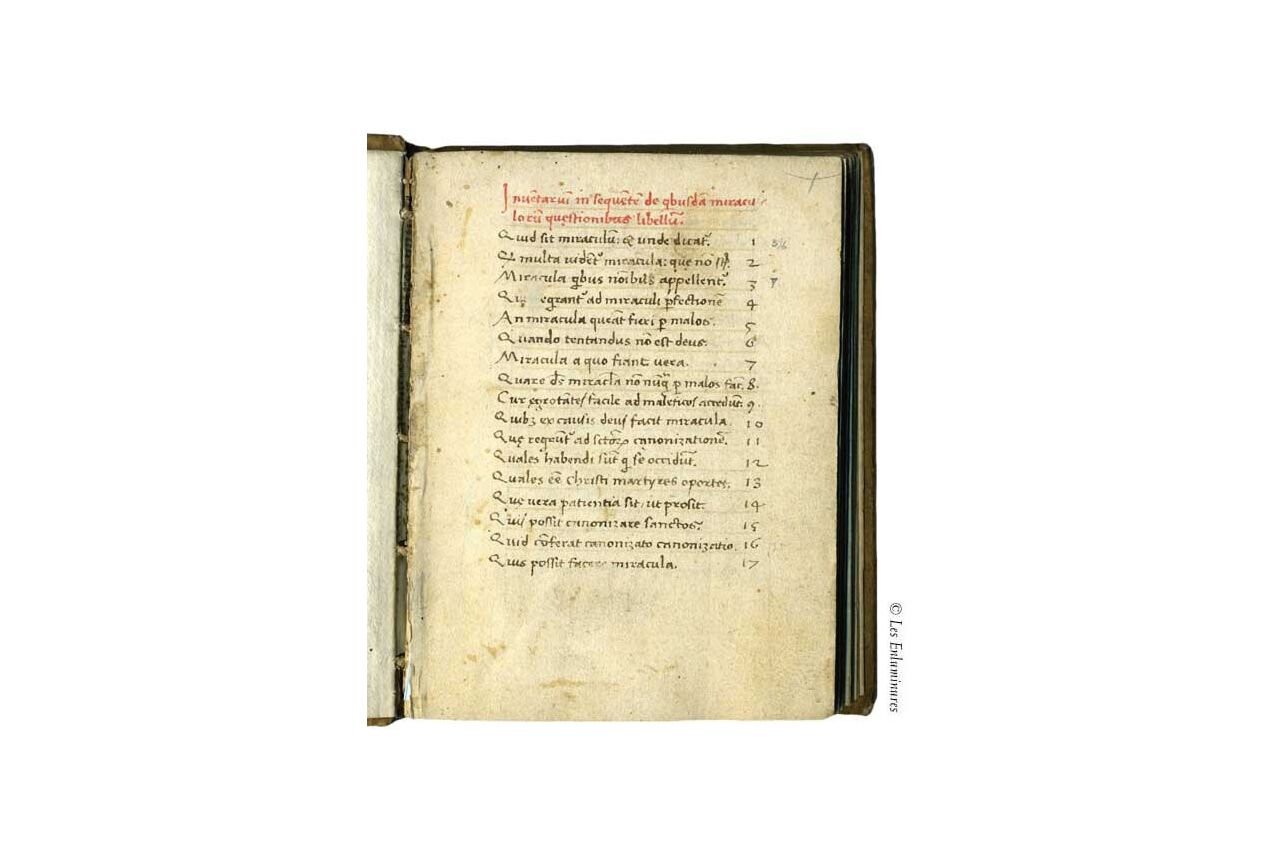 Inuētariū in sequētē de qbusdā miracu-
lorū quęstionibus libellū.
Quid sit miraculū: & unde dicat᷑. 1
Q multa vident᷑ miracula: que nō 2
Miracula qbus noībus appellent᷑ 3
ad miraculi pfectionē 4
An miracula queāt fieri p malos. 5
Quando tentandus nō est deus. 6
Miracula a quo fiant vera. 7
Quare ds miracla nō nūq p malos fāt. 8.
Cur egrotātes facile ad maleficos accedūt. 9.
Quibꝫ ex causis deus facit miracula. 10
Quę reqrunt᷑ ad sctorꝝ canonizationē. 11
Quales habendi sūt q se occidūt. 12
Quales eē Christi martyres oportet. 13
Que vera patientia sit, ut prosit. 14
Quis possit canonizare sanctos. 15
Quid cōferat canonizato canonizatio. 16
Quis possit facere miracula. 17
© Les Enluminures